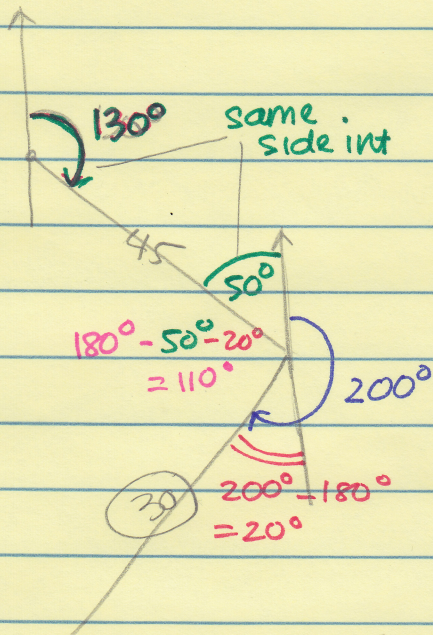 130°
same
side int
45
50°
180° - 50° - 20°
= 110°
200°
30
200° - 180°
= 20°